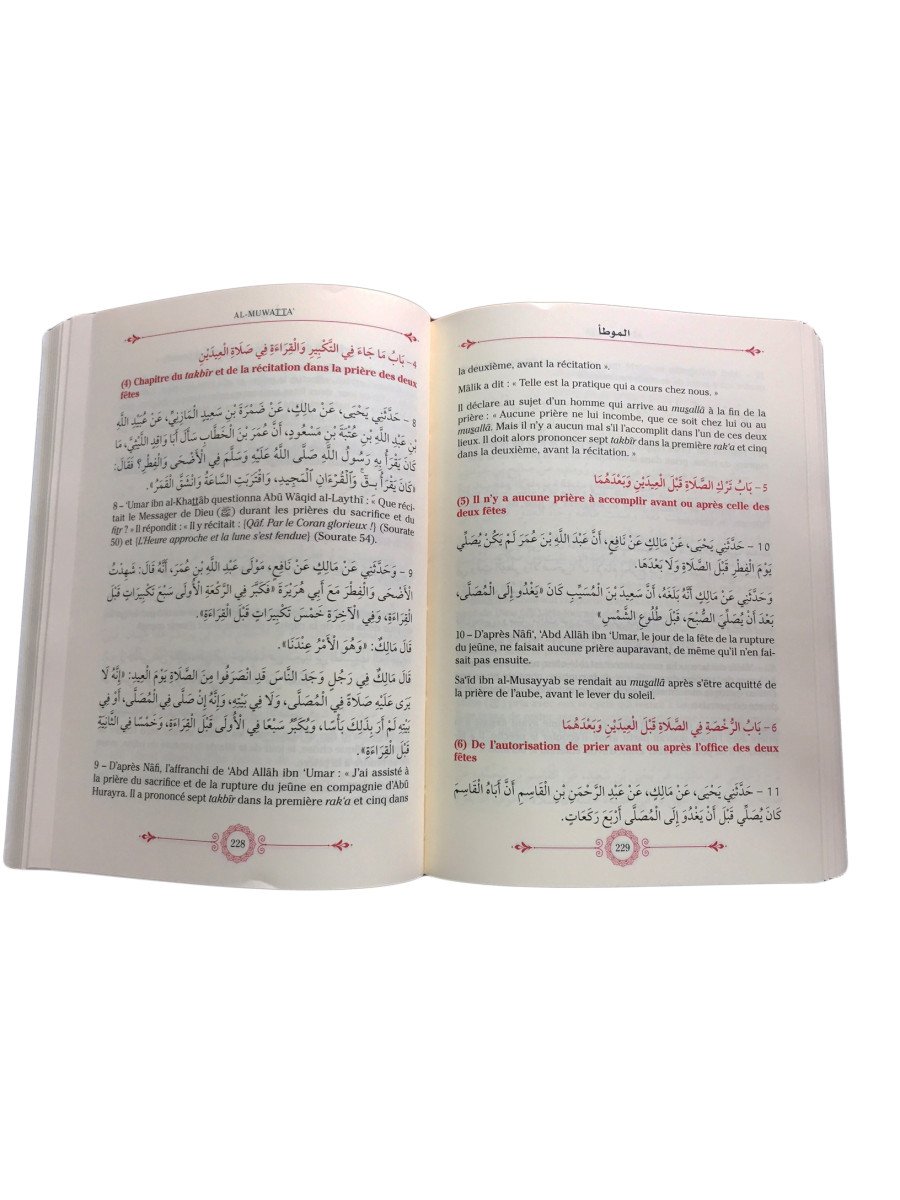 AL-MUWAṬṬA'
4- بَابُ مَا جَاءَ فِي التَّكْبِيرِ وَالْقِرَاءَةِ فِي صَلَاةِ الْعِيدَيْنِ
(4) Chapitre du takbīr et de la récitation dans la prière des deux
fêtes
8 - حَدَّثَنِي يَحْيَى، عَنْ مَالِكٍ، عَنْ ضَمْرَةَ بْنِ سَعِيدٍ الْمَازِنِيِّ، عَنْ عُبَيْدِ اللَّهِ
بْنِ عَبْدِ اللَّهِ بْنِ عُتْبَةَ بْنِ مَسْعُودٍ، أَنَّ عُمَرَ بْنَ الْخَطَّابِ سَأَلَ أَبَا وَاقِدٍ اللَّيْثِيَّ، مَا
كَانَ يَقْرَأُ بِهِ رَسُولُ اللَّهِ صَلَّى اللَّهُ عَلَيْهِ وَسَلَّمَ فِي الْأَضْحَى وَالْفِطْرِ؟ فَقَالَ:
«كَانَ يَقْرَأُ بِـقٓ، وَالْقُرْءَانِ الْمَجِيدِ، وَاقْتَرَبَتِ السَّاعَةُ وَانْشَقَّ الْقَمَرُ».
8 – 'Umar ibn al-Khaṭṭāb questionna Abū Wāqid al-Laythī : « Que réci-
tait le Messager de Dieu (ﷺ) durant les prières du sacrifice et du
fiṭr ? » Il répondit : « Il y récitait : {Qāf. Par le Coran glorieux !} (Sourate
50) et {L'Heure approche et la lune s'est fendue} (Sourate 54).
9 - وَحَدَّثَنِي عَنْ مَالِكٍ عَنْ نَافِعٍ، مَوْلَى عَبْدِ اللَّهِ بْنِ عُمَرَ، أَنَّهُ قَالَ: شَهِدْتُ
الْأَضْحَى وَالْفِطْرَ مَعَ أَبِي هُرَيْرَةَ «فَكَبَّرَ فِي الرَّكْعَةِ الْأُولَى سَبْعَ تَكْبِيرَاتٍ قَبْلَ
الْقِرَاءَةِ، وَفِي الْآخِرَةِ خَمْسَ تَكْبِيرَاتٍ قَبْلَ الْقِرَاءَةِ».
قَالَ مَالِكٌ: «وَهُوَ الْأَمْرُ عِنْدَنَا».
قَالَ مَالِكٌ فِي رَجُلٍ وَجَدَ النَّاسَ قَدِ انْصَرَفُوا مِنَ الصَّلَاةِ يَوْمَ الْعِيدِ: «إِنَّهُ لَا
يَرَى عَلَيْهِ صَلَاةً فِي الْمُصَلَّى، وَلَا فِي بَيْتِهِ، وَإِنَّهُ إِنْ صَلَّى فِي الْمُصَلَّى، أَوْ فِي
بَيْتِهِ لَمْ أَرَ بِذَلِكَ بَأْسًا، وَيُكَبِّرُ سَبْعًا فِي الْأُولَى قَبْلَ الْقِرَاءَةِ، وَخَمْسًا فِي الثَّانِيَةِ
قَبْلَ الْقِرَاءَةِ».
9 – D'après Nāfi, l'affranchi de 'Abd Allāh ibn 'Umar : « J'ai assisté à
la prière du sacrifice et de la rupture du jeûne en compagnie d'Abū
Hurayra. Il a prononcé sept takbīr dans la première rak'a et cinq dans
228
الموطأ
la deuxième, avant la récitation ».
Mālik a dit : « Telle est la pratique qui a cours chez nous. »
Il déclare au sujet d'un homme qui arrive au muṣallā à la fin de la
prière : « Aucune prière ne lui incombe, que ce soit chez lui ou au
muṣallā. Mais il n'y a aucun mal s'il l'accomplit dans l'un de ces deux
lieux. Il doit alors prononcer sept takbīr dans la première rak'a et cinq
dans la deuxième, avant la récitation. »
5- بَابُ تَرْكِ الصَّلَاةِ قَبْلَ الْعِيدَيْنِ وَبَعْدَهُمَا
(5) Il n'y a aucune prière à accomplir avant ou après celle des
deux fêtes
10 - حَدَّثَنِي يَحْيَى، عَنْ مَالِكٍ عَنْ نَافِعٍ، أَنَّ عَبْدَ اللَّهِ بْنَ عُمَرَ لَمْ يَكُنْ يُصَلِّي
يَوْمَ الْفِطْرِ قَبْلَ الصَّلَاةِ وَلَا بَعْدَهَا.
وَحَدَّثَنِي عَنْ مَالِكٍ أَنَّهُ بَلَغَهُ، أَنَّ سَعِيدَ بْنَ الْمُسَيِّبِ كَانَ «يَغْدُو إِلَى الْمُصَلَّى،
بَعْدَ أَنْ يُصَلِّيَ الصُّبْحَ، قَبْلَ طُلُوعِ الشَّمْسِ»
10 – D'après Nāfi', 'Abd Allāh ibn 'Umar, le jour de la fête de la rupture
du jeûne, ne faisait aucune prière auparavant, de même qu'il n'en fai-
sait pas ensuite.
Sa'īd ibn al-Musayyab se rendait au muṣallā après s'être acquitté de
la prière de l'aube, avant le lever du soleil.
6- بَابُ الرُّخْصَةِ فِي الصَّلَاةِ قَبْلَ الْعِيدَيْنِ وَبَعْدَهُمَا
(6) De l'autorisation de prier avant ou après l'office des deux
fêtes
11 - حَدَّثَنِي يَحْيَى، عَنْ مَالِكٍ، عَنْ عَبْدِ الرَّحْمَنِ بْنِ الْقَاسِمِ أَنَّ أَبَاهُ الْقَاسِمَ
كَانَ يُصَلِّي قَبْلَ أَنْ يَغْدُوَ إِلَى الْمُصَلَّى أَرْبَعَ رَكَعَاتٍ.
229